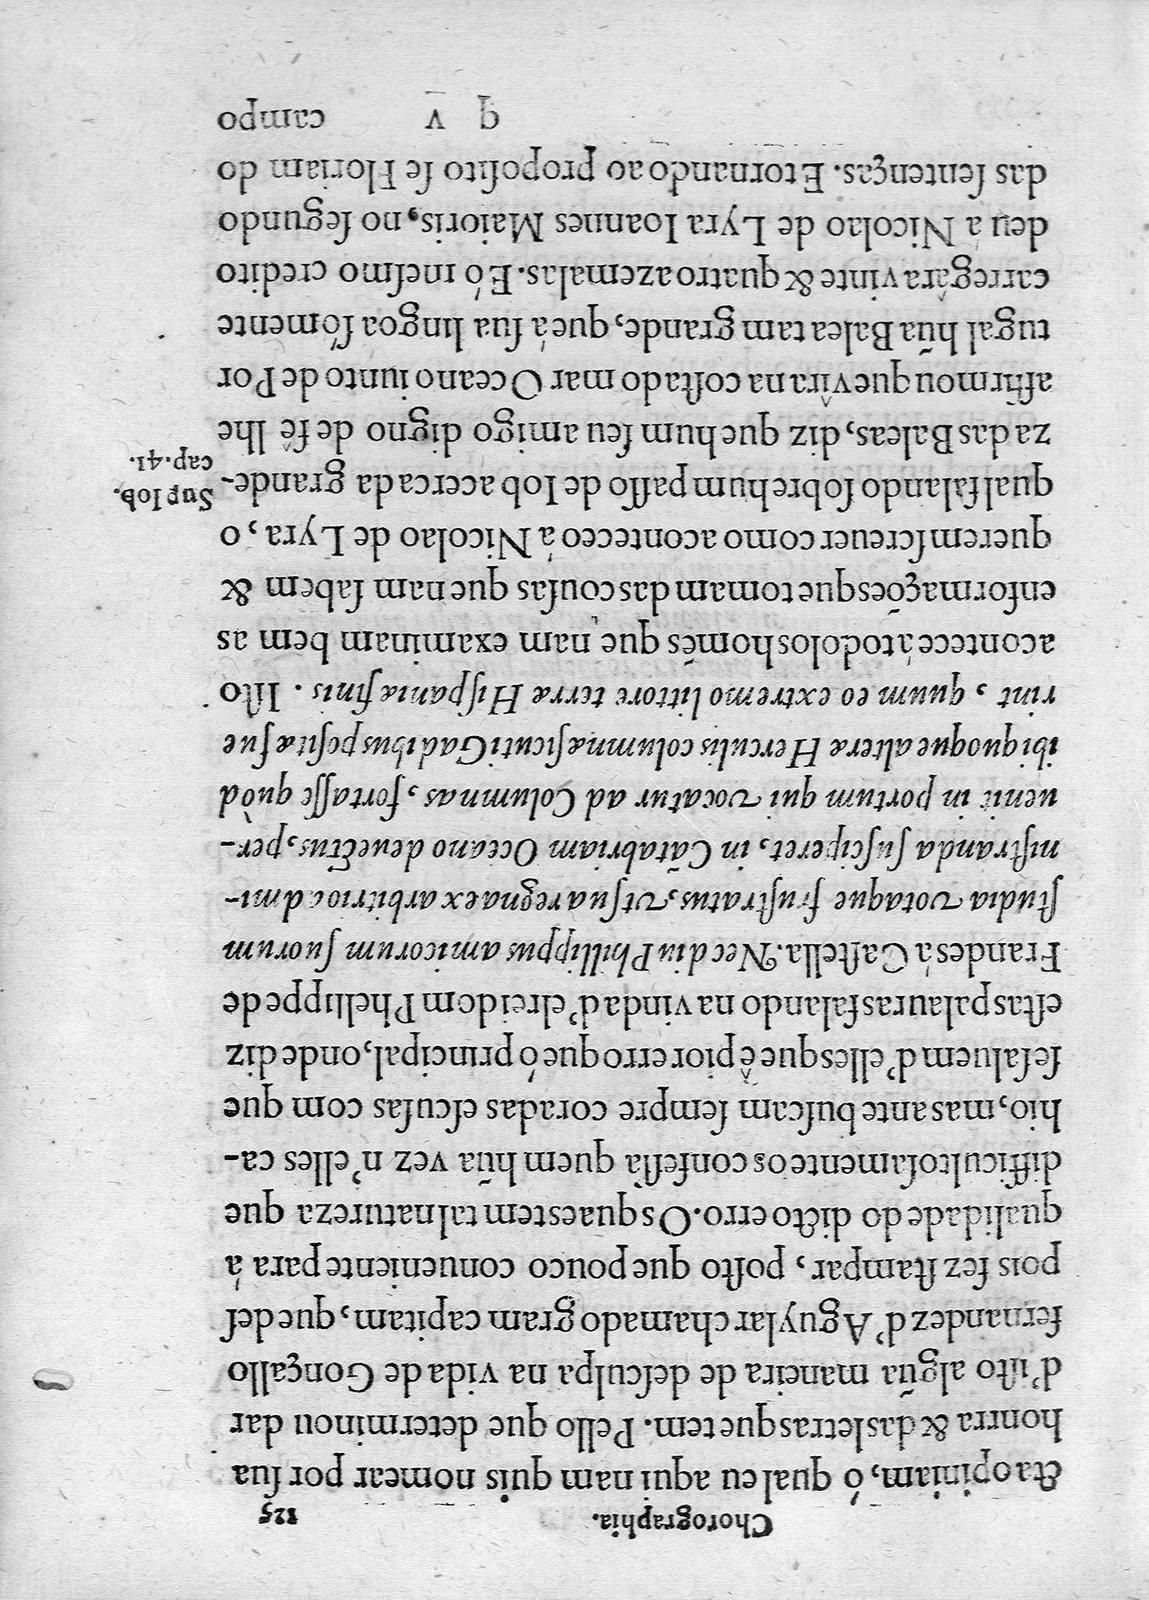 Chorographia. 125
ctaopiniam, ó qual eu aqui nam quis nomear por sua
honrra & das letras que tem. Pello que determinou dar
d'isto algũa maneira de desculpa na vida de Gonçallo
fernandez d'Aguylar chamado gram capitam, que des
pois fez stampar, posto que pouco conueniente para á
qualidade do dicto erro. Os quaes tem tal natureza que
difficultosamente os confessa quem hũa vez n'elles ca-
hio, mas ante buscam sempre coradas escusas com que
se saluem d'elles que ê pior erro que ó principal, onde diz
estas palauras falando na vinda d'elrei dom Phelippe de
Frandes á Castella. Nec diu Phillippus amicorum suorum
studia votaque frustratus, vt sua regna ex arbitrio admi-
nistranda susciperet, in Cātabriam Oceano deuectus, per-
uenit in portum qui vocatur ad Columnas, fortasse quòd
ibi quoque alteræ Herculis columnæ sicuti Gadibus positæ fue
rint, quum eo extremo littore terræ Hispaniæ finis. Isto
acontece á todolos homẽs que nam examinam bem as
enformações que tomam das cousas que nam sabem &
querem screuer como aconteceo á Nicolao de Lyra, o
qual falando sobre hum passo de Iob acerca da grande-
za das Baleas, diz que hum seu amigo digno de fê lhe
affirmou que vîra na costa do mar Oceano iunto de Por
tugal hũa Balea tam grande, que á sua lingoa sómente
carregâra vinte & quatro azemalas. E ó mesmo credito
deu á Nicolao de Lyra Ioannes Maioris, no segundo
das sentenças. E tornando ao proposito se Floriam do
q v campo
Sup Iob.
cap. 41.